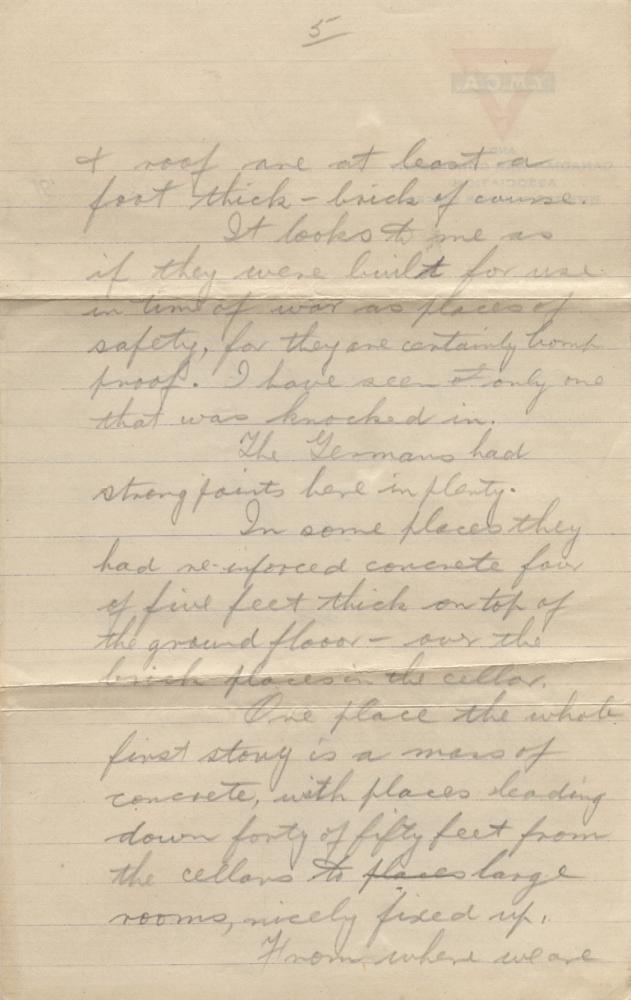 5
& roof are at least a
foot thick - brick of course.
It looks to me as
if they were built for use
in time of war as places of
safety, for they are certainly bomb
proof. I have seen of only one
that was knocked in.
The Germans had
strong points here in plenty.
In some places they
had re-inforced concrete four
of five feet thick on top of
the ground flooor - over the
brick places in the cellar.
One place the whole
first story is a mass of
concrete, with places leading
down forty of fifty feet from
the cellars to places large
rooms, nicely fixed up.
From where we are